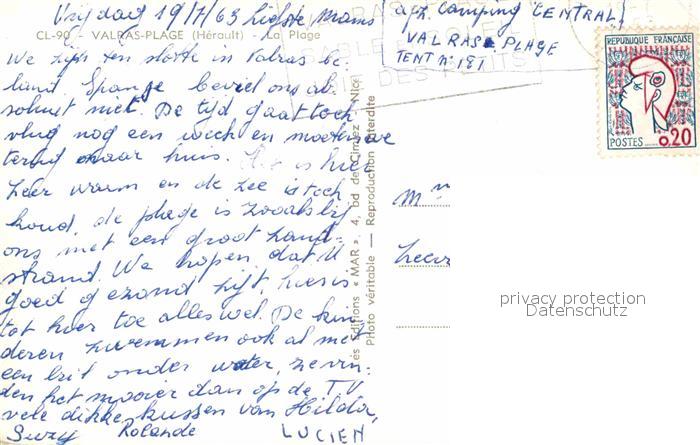 Vrijdag 19/7/63 liefste Mams
afz. Camping CENTRAL
VALRAS PLAGE
TENT n° 181
CL-90 - VALRAS-PLAGE (Hérault) - La Plage
We zijn ten slotte in Valras be-
land, Spanje beviel ons ab-
soluut niet. De tijd gaat toch
vlug nog een week en moeten we
terug naar huis. Het is hier
zeer warm en de zee is toch
koud, de plage is zooals bij
ons met een groot zand-
strand. We hopen dat U
goed gezond zijt, hier is
tot hier toe alles wel. De kin-
deren zwemmen ook al met
een bril onder water, ze vin-
den het mooier dan op de T.V.
vele dikke kussen van Hilda,
Suzy Rolande LUCIEN
Editions « MAR », 4, bd de Cimiez - Nice
Photo véritable — Reproduction interdite
REPUBLIQUE FRANÇAISE
POSTES
0,20
Mʳ
privacy protection
Datenschutz